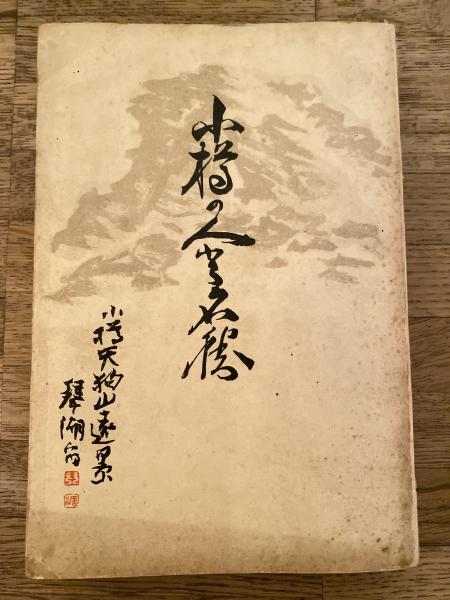 小樽の人と名勝
小樽天狗山遠景
琴湖寫